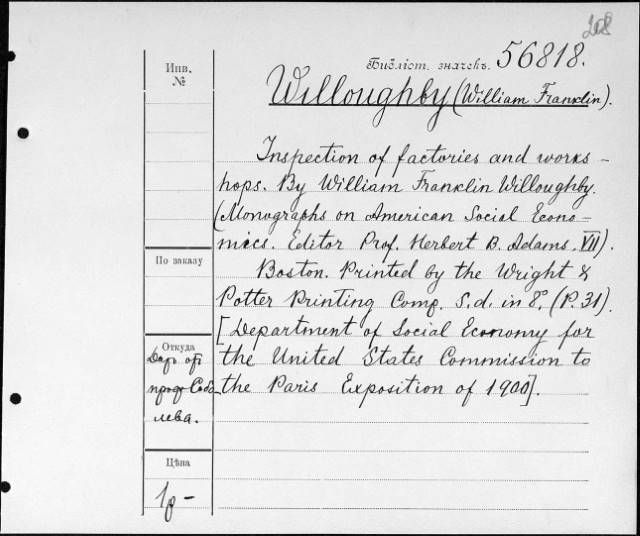 208
Инв.
№
Библіот. значекъ. 56818.
Willoughby (William Franklin).
Inspection of factories and works-
hops. By William Franklin Willoughby.
(Monographs on American Social Econo-
mics. Editor Prof. Herbert B. Adams. VII).
По заказу
Boston. Printed by the Wright &
Potter Printing Comp. S.d. in 8°. (P. 31).
[Department of Social Economy for
the United States Commission to
the Paris Exposition of 1900].
Откуда
Даръ отъ
проф. Собо-
лева.
Цѣна
1р-